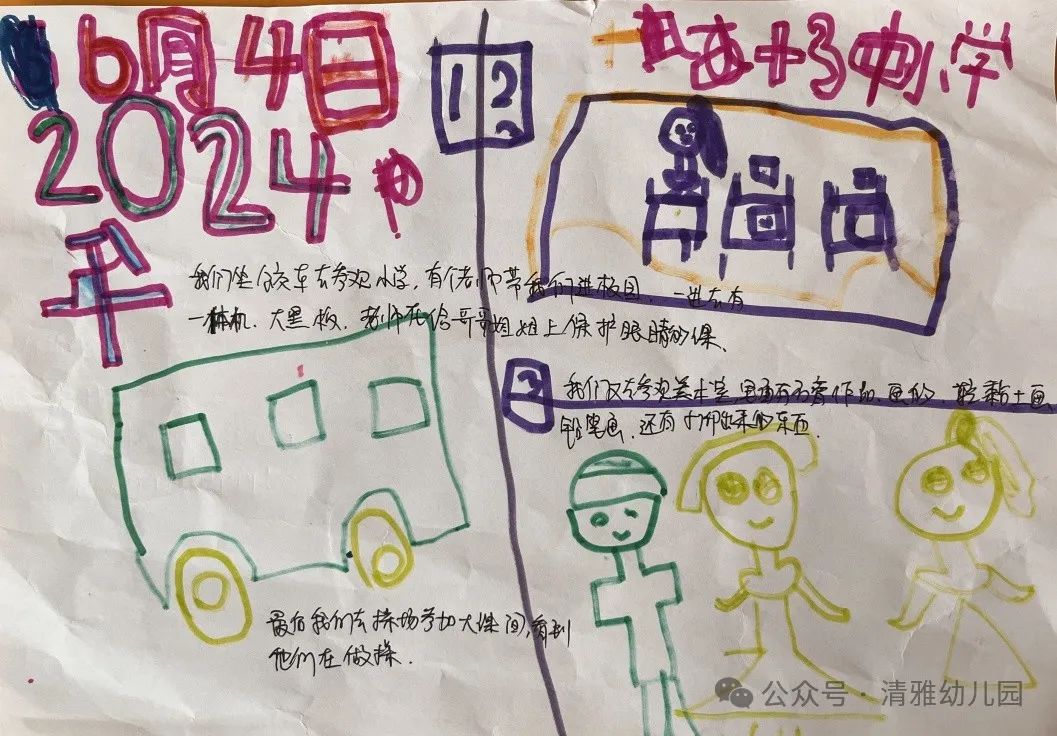 6月4日
2024
年
1
2
十3中小学
我们坐公交车去参观小学,有个老师带我们进校园,一进去有
一体机、大黑板,老师在给哥哥姐姐上保护眼睛的课、
2
我们又去参观美术室里面有石膏作品、画的、轻黏土画、
铅笔画、还有打印出来的东西.
最后我们去操场参加大课间,看到
他们在做操.
公众号·清雅幼儿园